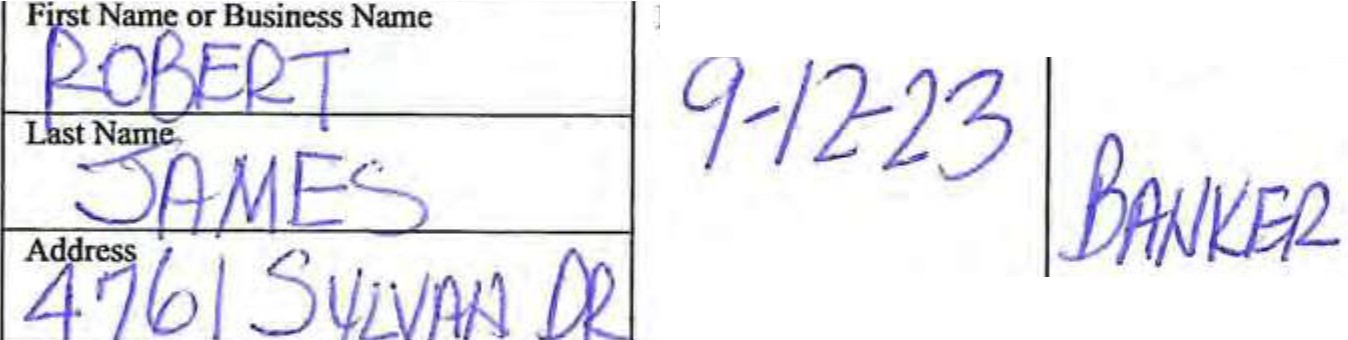 First Name or Business Name
ROBERT
Last Name
JAMES
Address
4761 SYLVAN DR
9-12-23
BANKER